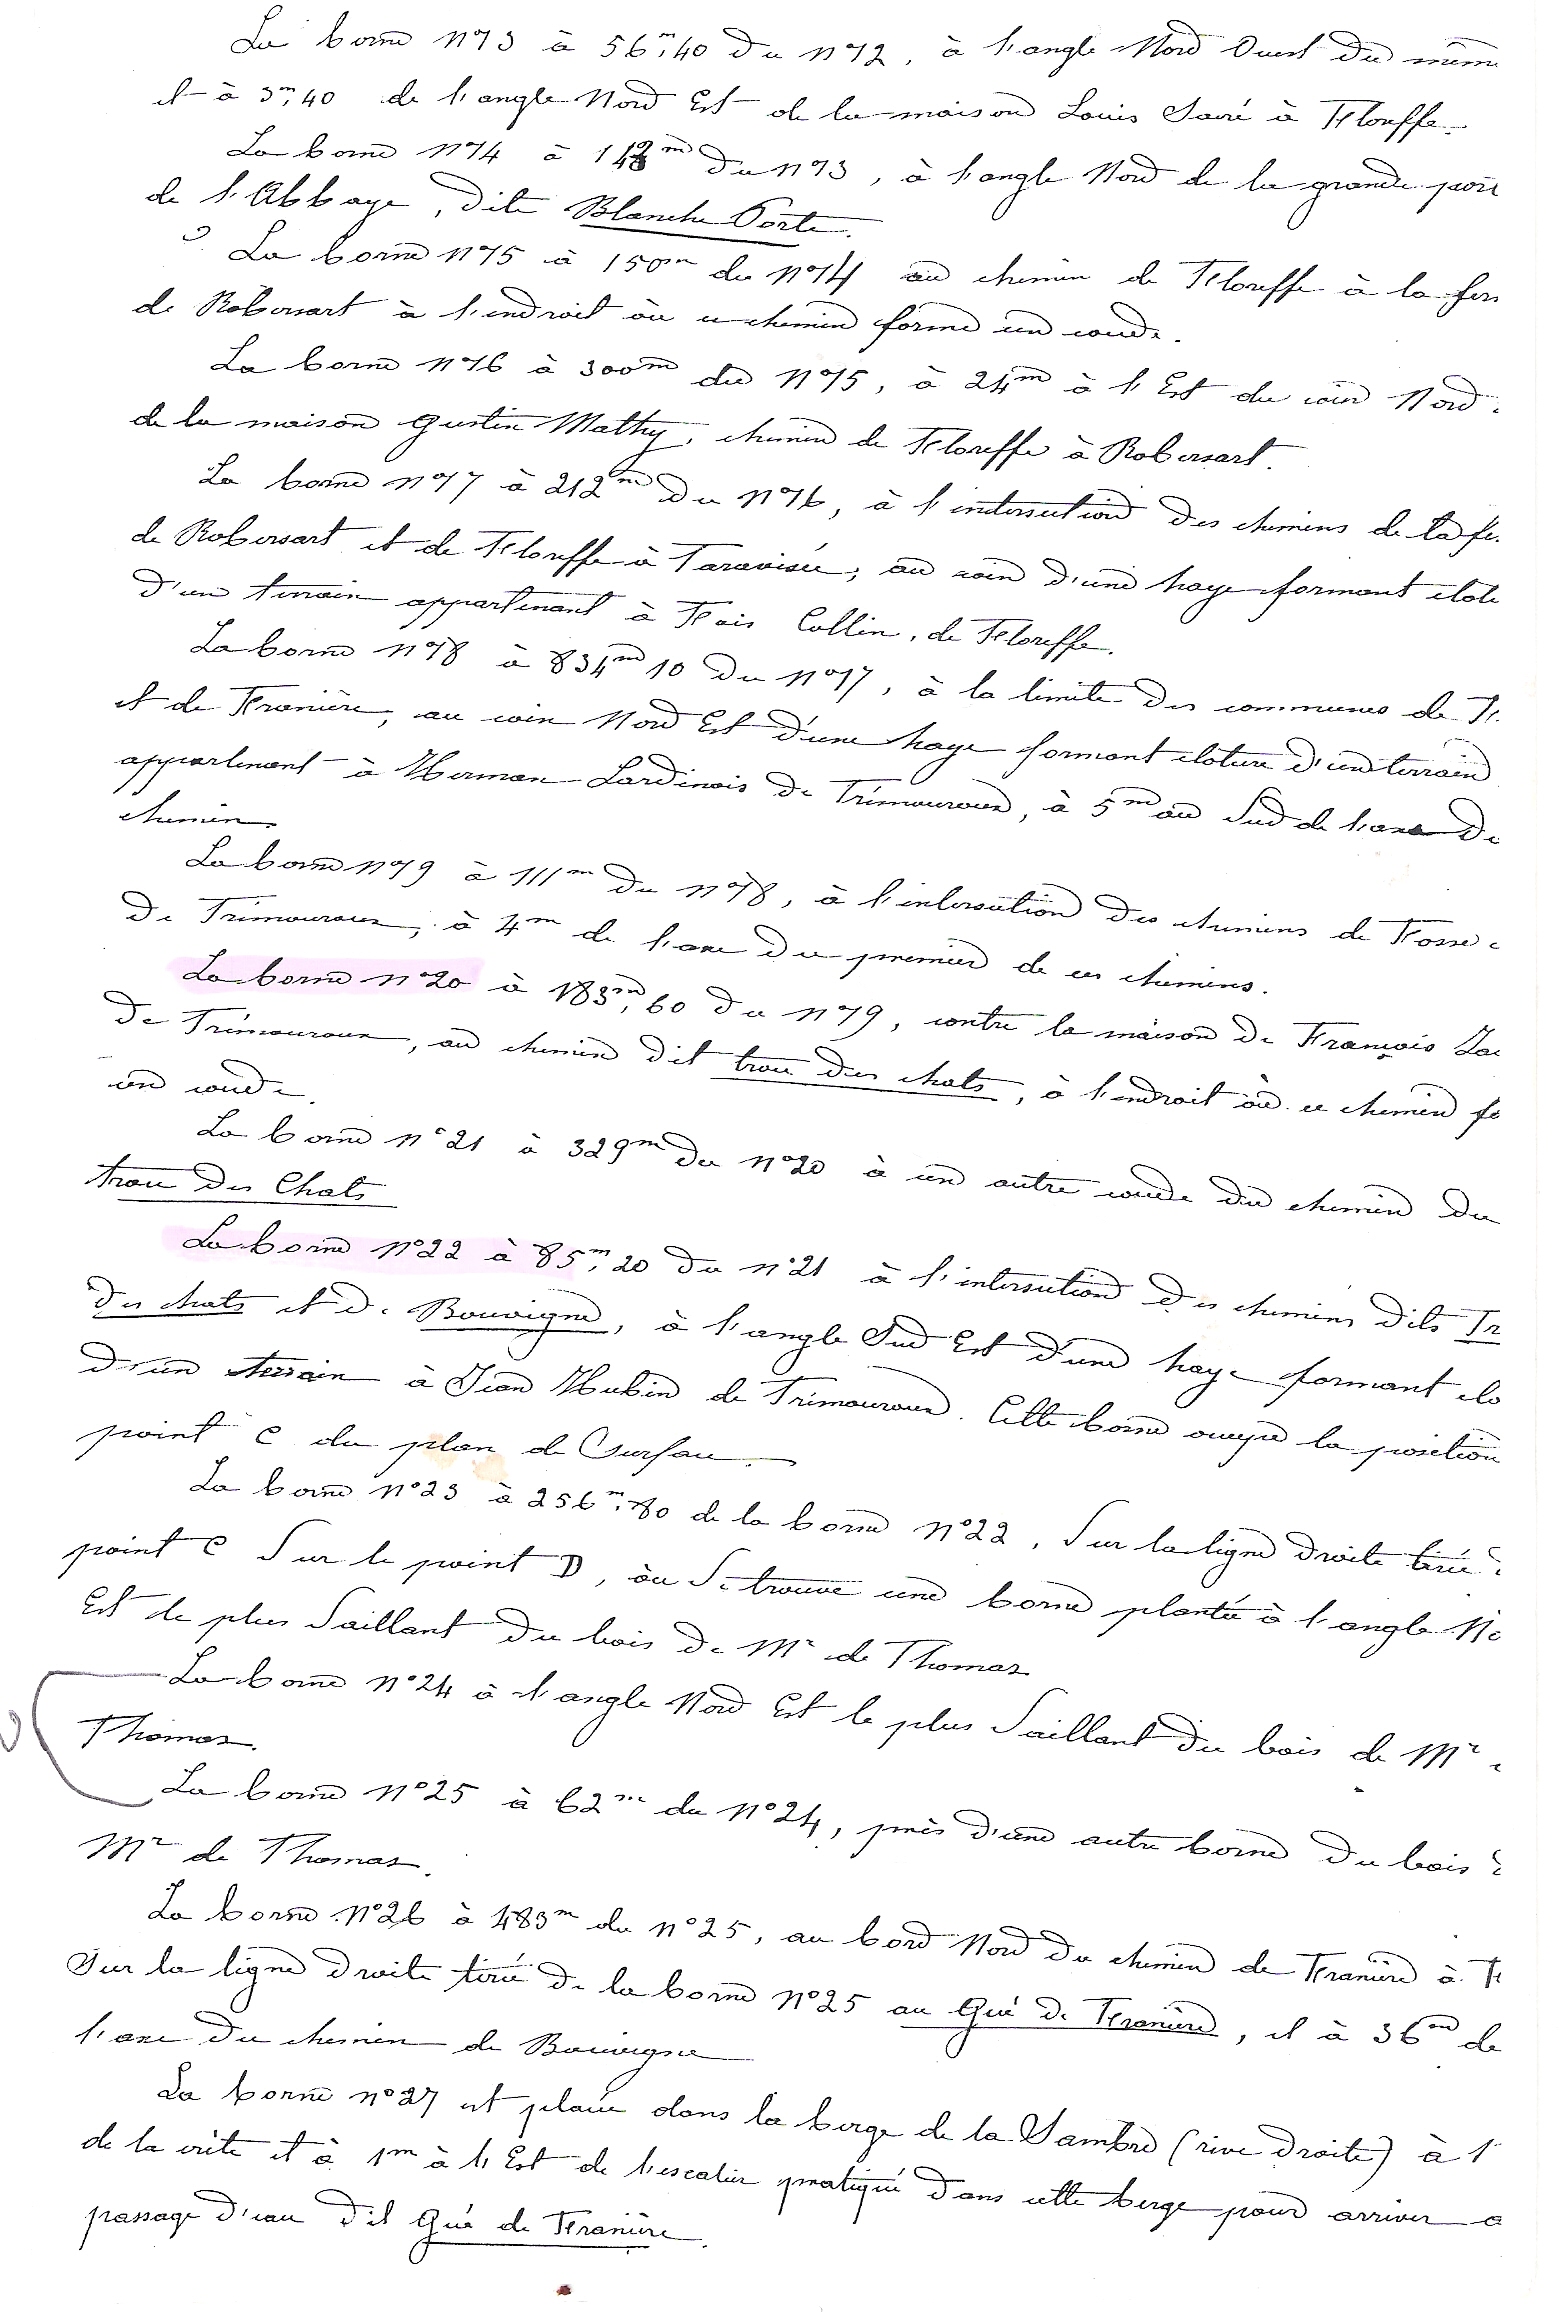 La borne n°13 à 56m,40 du n°12, à l'angle Nord Ouest du même
et à 3m,40 de l'angle Nord Est de la maison Louis à Floreffe.
La borne n°14 à du n°13, à l'angle Nord de la grande porte
de l'Abbaye, dite Blanche Porte.
La borne n°15 à 150m du n°14 au chemin de Floreffe à la fer
de Robersart à l'endroit où ce chemin forme un coude.
La borne n°16 à 300m du n°15, à 24m à l'Est du coin Nord
de la maison Gustin Mathy, chemin de Floreffe à Robersart.
La borne n°17 à 212m du n°16, à l'intersection des chemins de la fe
de Robersart et de Floreffe à Taravisée, au coin d'une haye formant clotu
d'un terrain appartenant à Fois Collin, de Floreffe.
La borne n°18 à 834m 10 du n°17, à la limite des communes de Fl
et de Franière, au coin Nord Est d'une haye formant cloture d'un terrain
appartenant à Herman Lardinois de Trémouroux, à 5m au Sud de l'axe de
chemin.
La borne n°19 à 111m du n°18, à l'intersection des chemins de Fosse
De Trémouroux, à 4m de l'axe du premier de ces chemins.
La borne n°20 à 183m,60 du n°19, contre la maison de François
De Trémouroux, au chemin dit trou des chats, à l'endroit où ce chemin fo
un coude.
La borne n°21 à 329m du n°20 à un autre coude du chemin du
trou des Chats
La borne n°22 à 85m,20 du n°21 à l'intersection des chemins dits Tr
des chats et de Bouvigne, à l'angle Sud Est d'une haye formant clo
d'un terrain à Jean Hubin de Trémouroux. Cette borne occupe la position
point C du plan de Surface.
La borne n°23 à 256m,80 de la borne n°22, Sur la ligne droite tirée
point C Sur le point D, où Se trouve une borne plantée à l'angle No
Est le plus Saillant du bois de Mr de Thomaz
La borne n°24 à l'angle Nord Est le plus Saillant du bois de Mr
Thomaz.
La borne n°25 à 62m du n°24, près d'une autre borne du bois
Mr de Thomaz.
La borne n°26 à 483m du n°25, au bord Nord du chemin de Franière à Fl
Sur la ligne droite tirée de la borne n°25 au Gué de Franière, et à 36m de
l'axe du chemin de Bouvigne
La borne n°27 est placée dans la berge de la Sambre (rive droite) à l'
de la crête et à 1m à l'Est de l'escalier pratiqué dans cette berge pour arriver a
passage d'eau dit Gué de Franière.